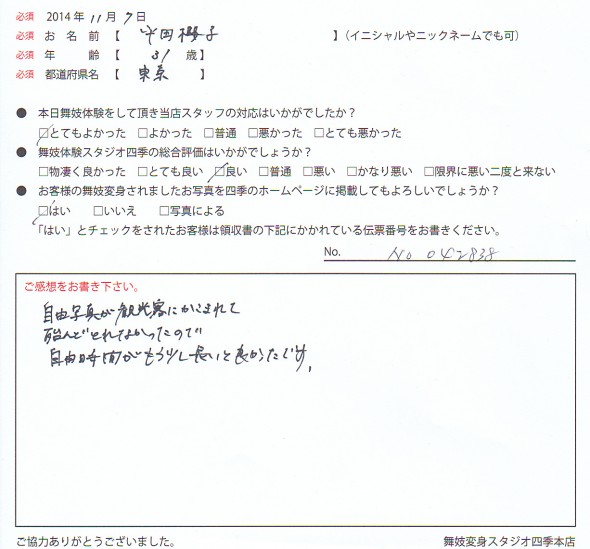 必須 2014年 11月 7日
必須 お名前【 半田櫻子 】(イニシャルやニックネームでも可)
必須 年齢【 31 歳】
必須 都道府県名【 東京 】
● 本日舞妓体験をして頂き当店スタッフの対応はいかがでしたか？
□とてもよかった □よかった □普通 □悪かった □とても悪かった
● 舞妓体験スタジオ四季の総合評価はいかがでしょうか？
□物凄く良かった □とても良い □良い □普通 □悪い □かなり悪い □限界に悪い二度と来ない
● お客様の舞妓変身されましたお写真を四季のホームページに掲載してもよろしいでしょうか？
□はい □いいえ □写真による
「はい」とチェックをされたお客様は領収書の下記にかかれている伝票番号をお書きください。
No. No 042838
ご感想をお書き下さい。
自由写真が観光客にかこまれて
殆んどとれなかったので
自由時間がもう少し長いと良かったです。
ご協力ありがとうございました。 舞妓変身スタジオ四季本店